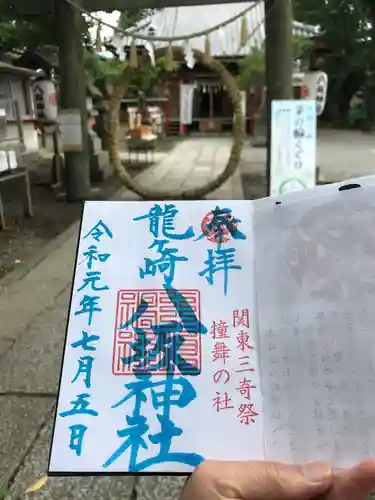 奉拝
関東三奇祭
撞舞の社
龍ケ崎
八坂神社
令和元年七月五日
茅の輪くぐり